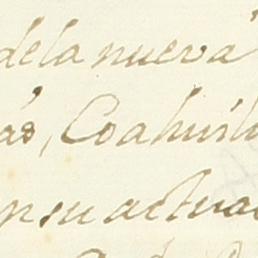 dela nueva
as, Coahuil
su actua